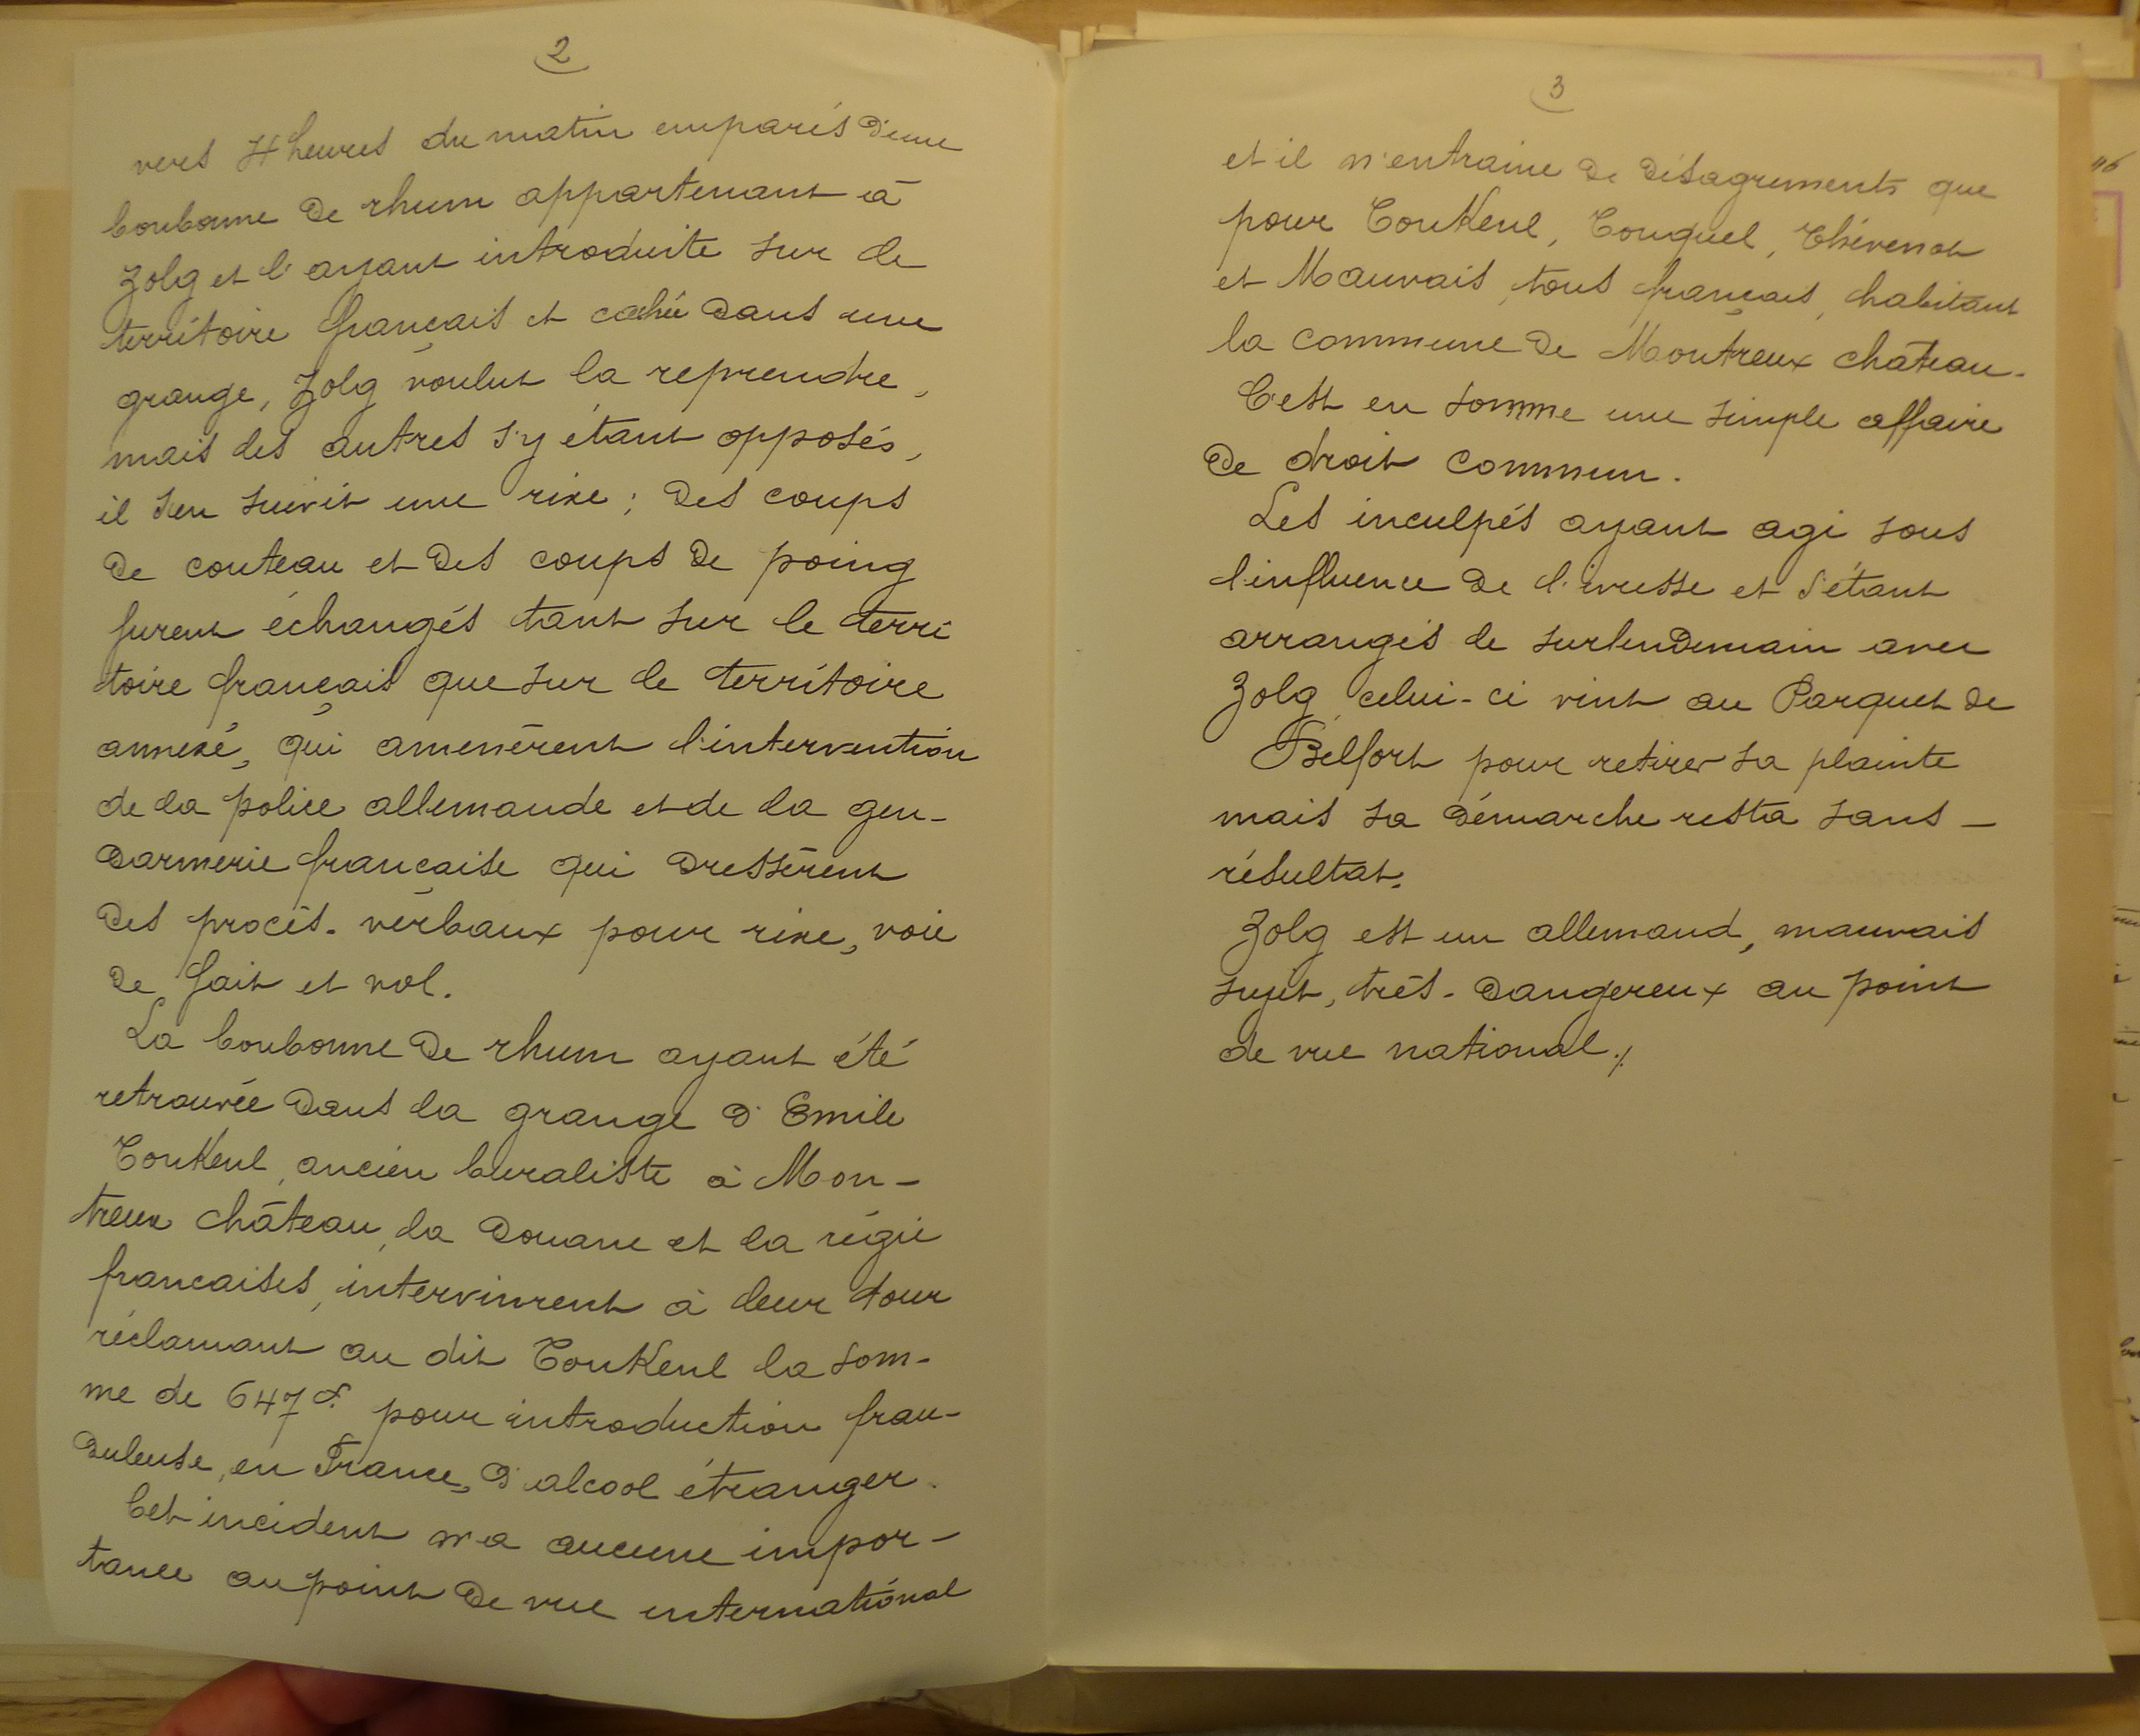 2
vers 4 heures du matin emparés d'une
bonbonne de rhum appartenant à
Zolg et l'ayant introduite sur le
territoire français et cachée dans une
grange, Zolg voulut la reprendre,
mais les autres s'y étant opposés,
il s'en suivit une rixe ; des coups
de couteau et des coups de poing
furent échangés tant sur le terri
toire français que sur le territoire
annexé, qui amenèrent l'intervention
de la police allemande et de la gen-
darmerie française qui dressèrent
des procès-verbaux pour rixe, voie
de fait et vol.
La bonbonne de rhum ayant été
retrouvée dans la grange d'Emile
Toukeul, ancien buraliste à Mon-
treux château, la douane et la régie
francaises, intervinrent à leur tour
réclamant au dit Toukeul la som-
me de 647 f. pour introduction frau-
duleuse, en France, d'alcool étranger.
Cet incident n'a aucune impor-
tance au point de vue international
3
et il n'entraine de désagrements que
pour Toukeul, Couquel, Thévenot
et Mauvais, tous français, habitant
la commune de Montreux château.
C'est en somme une simple affaire
de droit commun.
Les inculpés ayant agi sous
l'influence de l'ivresse et s'étant
arrangés le surlendemain avec
Zolg, celui-ci vint au Parquet de
Belfort pour retirer sa plainte
mais sa démarche resta sans-
résultat.
Zolg est un allemand, mauvais
sujet, très-dangereux au point
de vue national./.